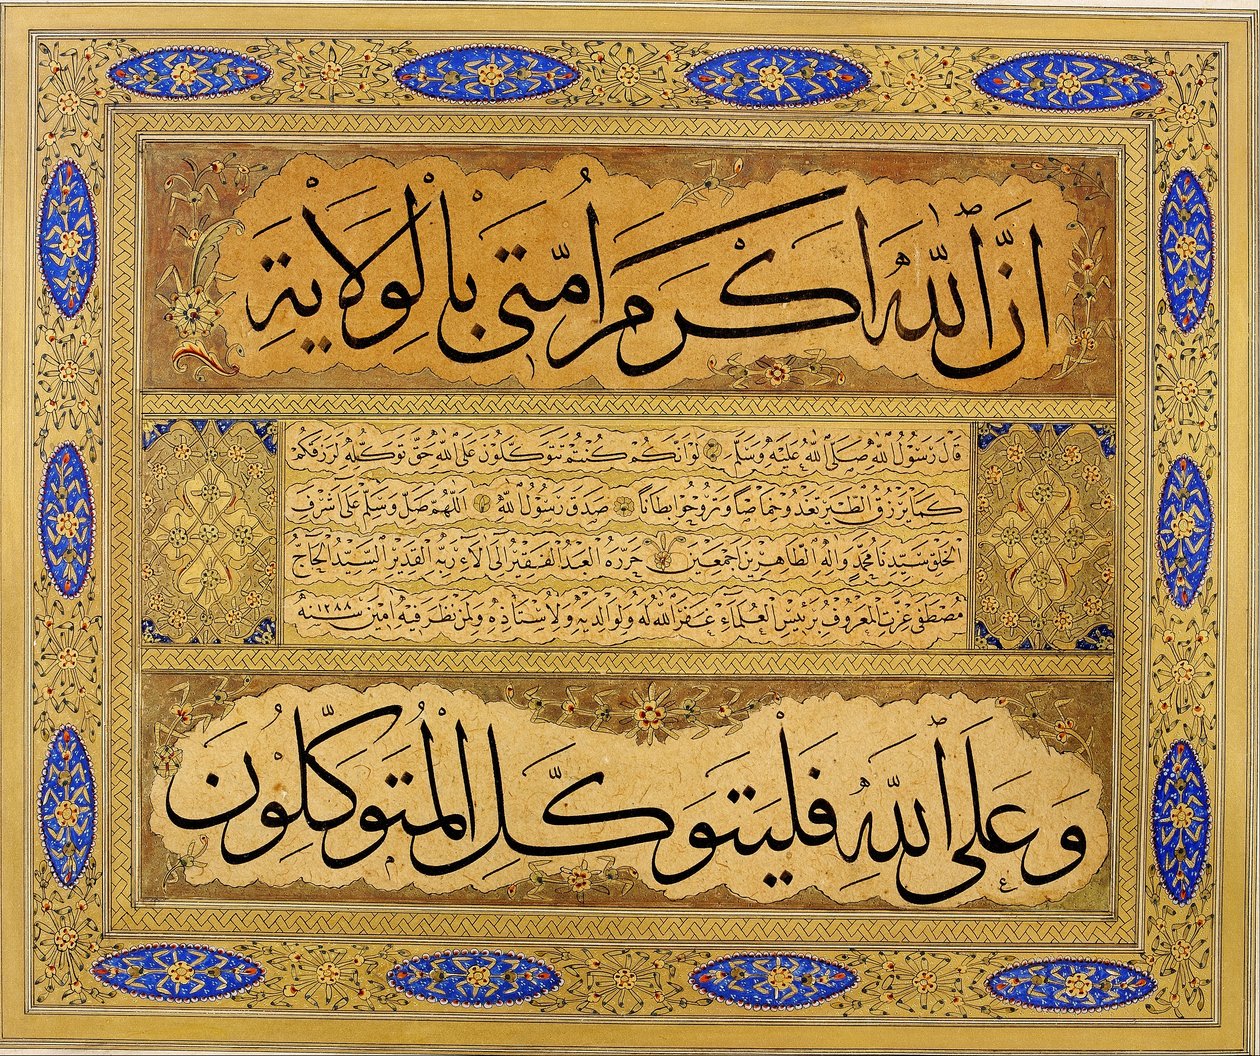 اِنَّ اللّٰهَ اَكْرَمَ اُمَّتٖى بِالْوِلَايَةِ
قَالَ رَسُولُ اللّٰهِ صَلَّى اللّٰهُ عَلَيْهِ وَسَلَّمَ لَوْ اَنَّكُمْ كُنْتُمْ تَتَوَكَّلُونَ عَلَى اللّٰهِ حَقَّ تَوَكُّلِهِ لَرَزَقَكُمْ
كَمَا يَرْزُقُ الطَّيْرَ تَغْدُو خِمَاصًا وَتَرُوحُ بِطَانًا صَدَقَ رَسُولُ اللّٰهِ اَللّٰهُمَّ صَلِّ وَسَلِّمْ عَلَى اَشْرَفِ
الْخَلْقِ سَيِّدِنَا مُحَمَّدٍ وَاٰلِهِ الطَّاهِرِينَ اَجْمَعِينَ حَرَّرَهُ الْعَبْدُ الْفَقِيرُ اِلَى اٰلَاءِ رَبِّهِ الْقَدِيرِ السَّيِّدُ الْحَاجُّ
مُصْطَفٰى عِزَّت الْمَعْرُوفُ بِرَئِيسِ الْعُلَمَاءِ غَفَرَ اللّٰهُ لَهُ وَلِوَالِدَيْهِ وَلِاُسْتَاذِهِ وَلِمَنْ نَظَرَ فِيهِ اٰمِينَ سَنَهُ ١٢٨٨
وَعَلَى اللّٰهِ فَلْيَتَوَكَّلِ الْمُتَوَكِّلُونَ